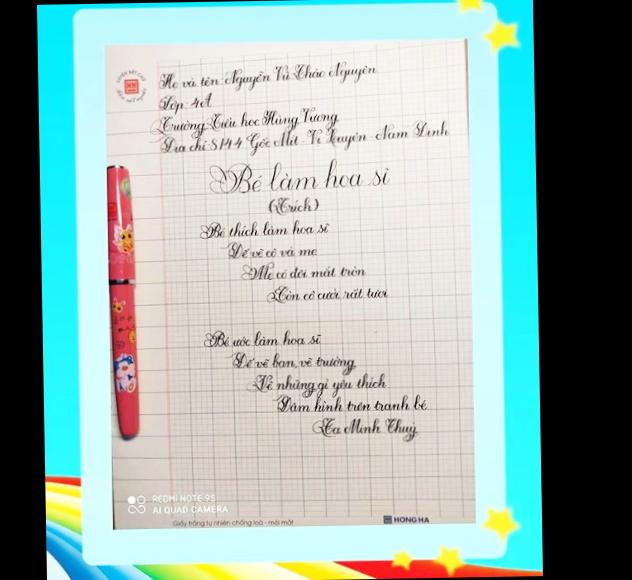 Họ và tên: Nguyễn Vũ Thảo Nguyên
Lớp 4A
Trường Tiểu học Hùng Vương
Địa chỉ: S144 Gốc Mít - Vị Xuyên - Nam Định
Bé làm họa sĩ
(Trích)
Bé thích làm họa sĩ
Để vẽ cô và mẹ
Mẹ có đôi mắt tròn
Còn cô cười rất tươi
Bé ước làm họa sĩ
Để vẽ bạn, vẽ trường
Vẽ những gì yêu thích
Dậm hình trên tranh bé
Tạ Minh Thuỷ
REDMI NOTE 9S
AI QUAD CAMERA
Giấy trắng tự nhiên chống loá - mỏi mắt
HONG HA